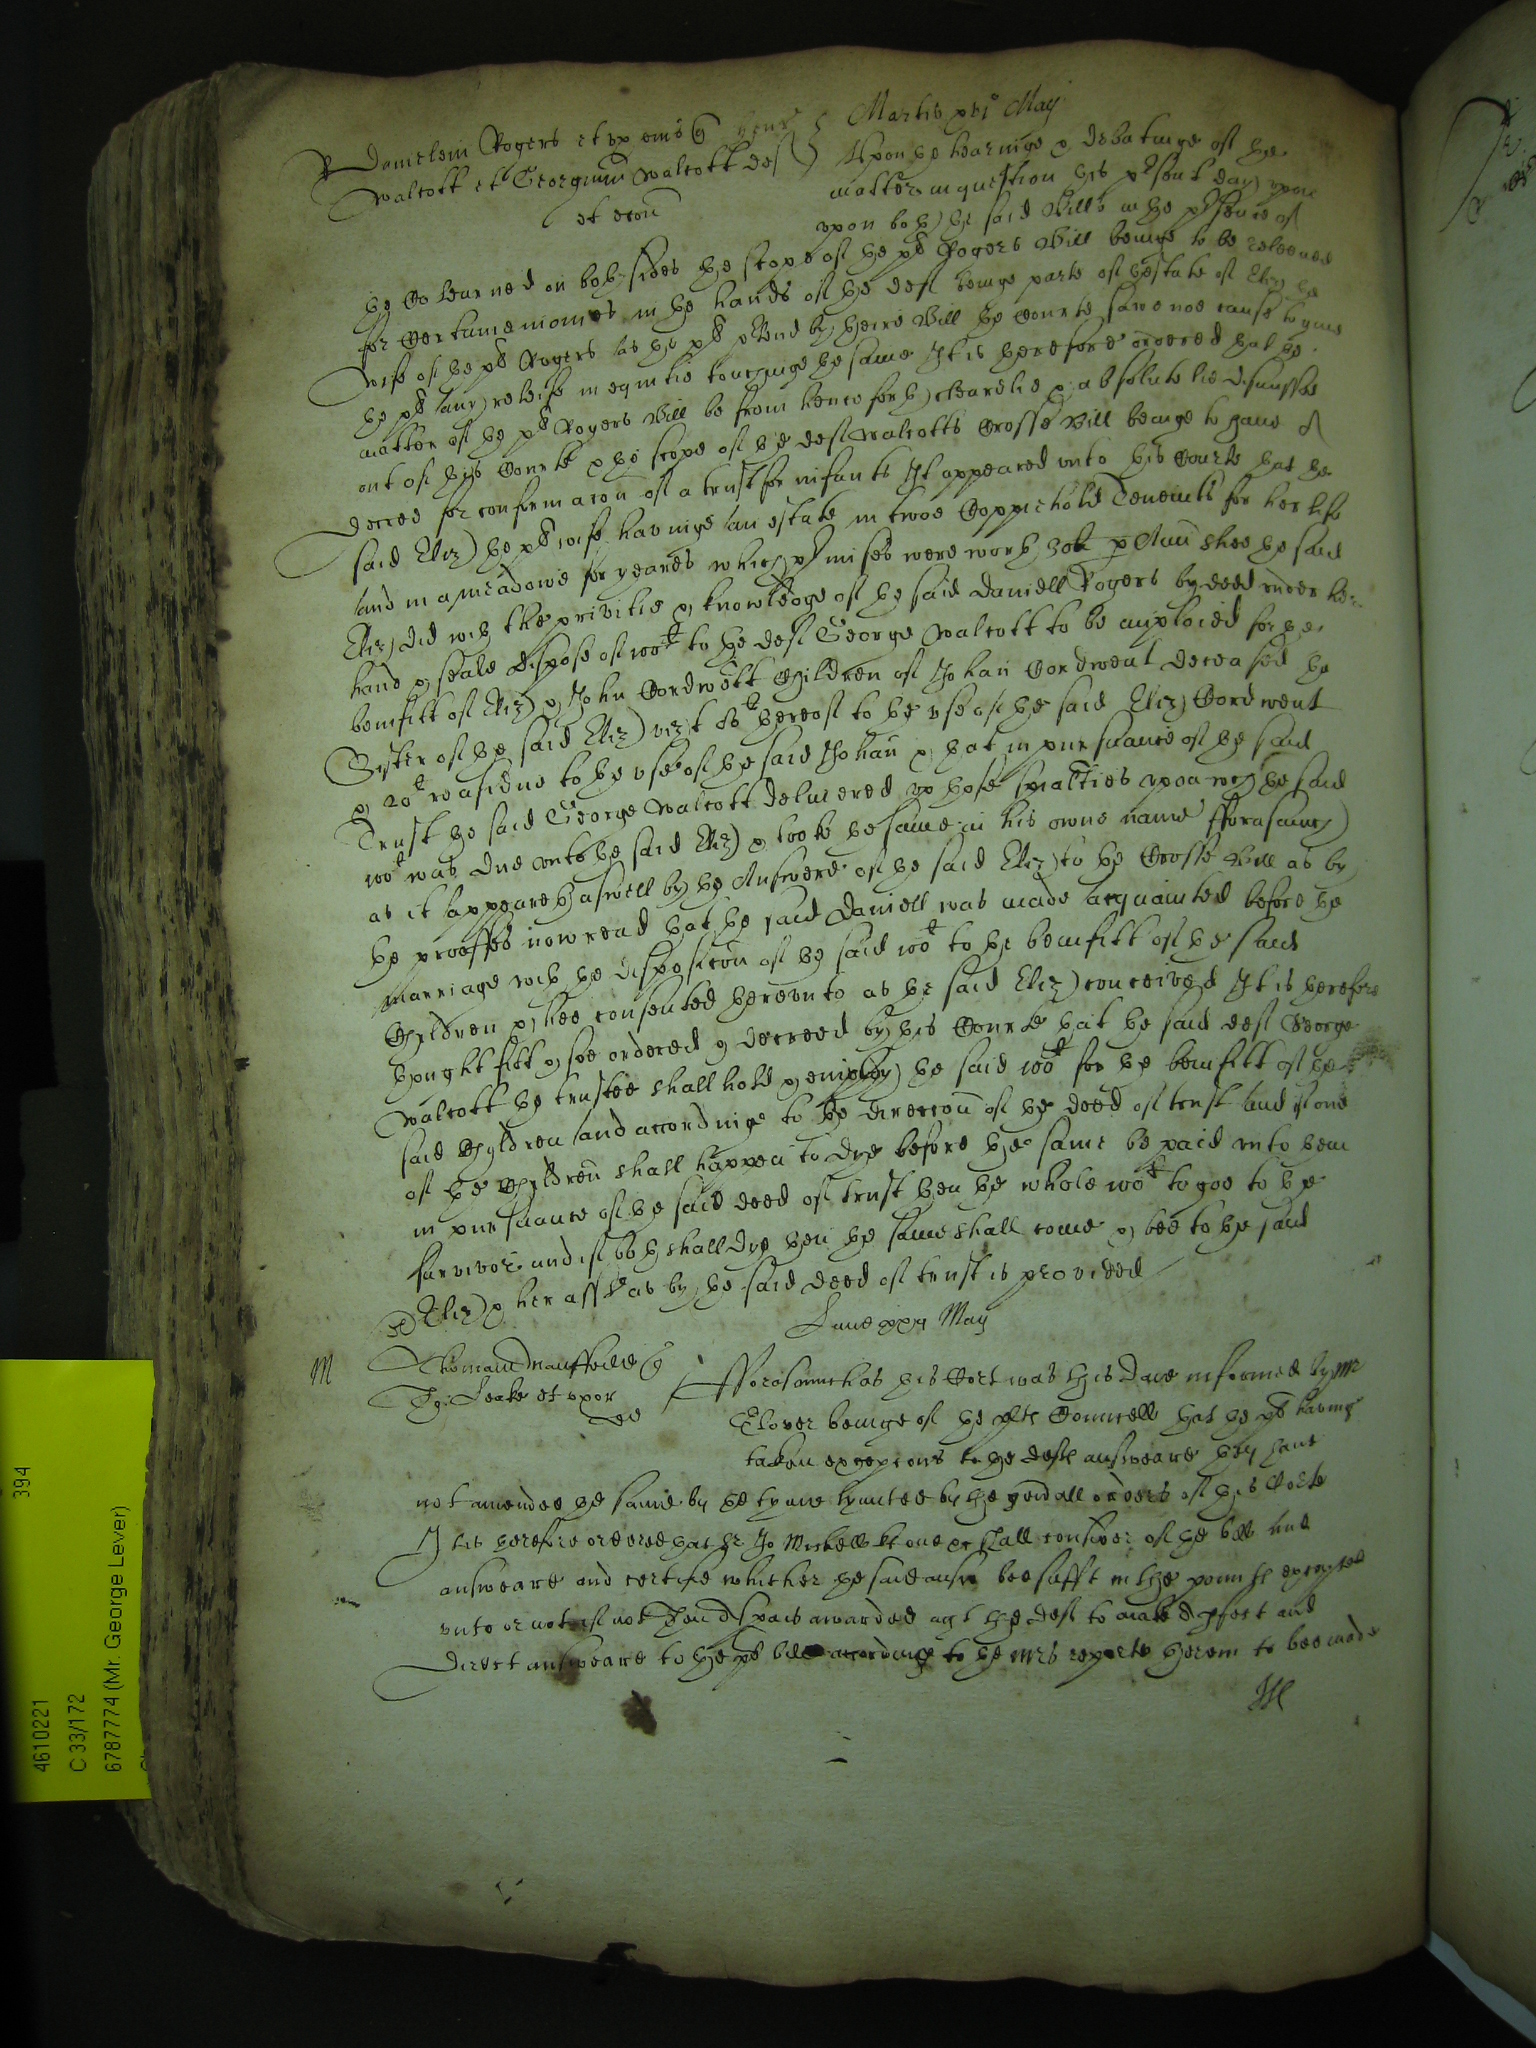 Martis xvi° Maij
R Danielem Rogers et ux eius qu Henr
Walcott et Georgium Walcott def
et econ
Upon the hearinge & debatinge of the
matter in question this p'sent day upon
upon both the said Bills in the p'sence of
the Co learned on both sides the scope of the pl Rogers Bill beinge to be releeved
for Certaine monies in the hands of the def beinge parte of thestate of Eliz the
wife of the pl Rogers as the pl p'tend by theire Bill the Courte sawe noe cause to give
the pl any releife in equitie touchinge the same It is therefore ordered that the
matter of the pl Rogers Bill be from henceforth clearelie & absolutelie dismissed
out of this Courte & the scope of the def Walcotts Crosse Bill beinge to have a
decree for confirmacon of a trust for infants It appeared unto this Courte that the
said Eliz the pl wife havinge an estate in twoe Coppiehold Tenem'ts for her life
and in a meadowe for yeares which p'mises were worth 30li p Ann shee the said
Eliz did with the privitie & knowledge of the said Daniell Rogers by deed under her
hand & seale dispose of 100li to the def George Walcott to be imploied for the
benifitt of Eliz & John Cordwent Children of Johan Cordwent deceased the
Sister of the said Eliz vizt 80li thereof to the use of the said Eliz Cordwent
& 20li residue to the use of the said Johan & that in pursuance of the said
Trust the said George Walcott delivered up those spialties upon wch the said
100li was due unto the said Eliz & tooke the same in his owne name Fforasmuch
as it appeareth aswell by the Answere of the said Eliz to the Crosse Bill as by
the prooffes now read that the said Daniell was made acquainted before the
marriage with the disposicon of the said 100li to the benifitt of the said
Children & hee consented thereunto as the said Eliz conceived It is therefore
thought fitt & soe ordered & decreed by this Courte that the said def George
Walcott the trustee shall hold & employ the said 100li for the benifitt of the
said Children and accordinge to the direccon of the deed of trust and if one
of the Children shall happen to dye before the same be paid unto them
in pursuance of the said deed of trust then the whole 100li to goe to the
survivor and if both shall dye then the same shall come & bee to the said
Eliz & her ass as by the said deed of trust is provided
Lune xxii Maij
M
Thomam Mauffeild q
Tho: Leake et uxor
def
Fforasmuch as this Cort was this daie informed by Mr
Glover beinge of the plts Councell that the pl havinge
taken excepcons to the defts answeare they have
not amended the same by the tyme lymited by the gen'all orders of this Corte
It is therefore ordered that Sr Jo Michell kt one &c shall consider of the bill and
answeare and certifie whether the said answ bee sufft in the points excepted
unto or not if not then a spa is awarded agt the def to make a p'fect and
direct answeare to the pl bill accordinge to the Mrs reporte therein to bee made
394
4610221
C 33/172
6787774 (Mr. George Lever)